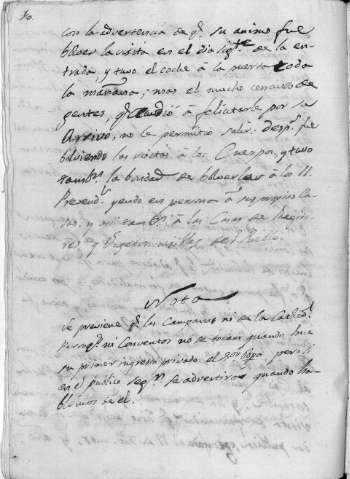 10.
con la advertencia de q.e su animo fue
bolver la visita en el dia sig.te de la en-
trada, y tuvo el coche â la puerta toda
la mañana; mas el mucho concurso de
gentes, q.e acudió â felicitarle por su
Arrivo, no le permitió salir. desp.s fue
bolviendo las visitas â los Cuerpos, y tuvo
tamb.n la bondad de bolverlas â los
Prevend.s yendo en persona â sus propias ca-
sas, y tamb.n â las Casas de Regido-
res y
Nota
Se previene q.e las Campanas ni de la Catedral
Parroq.s ni Conventos no se tocan quando hace
su primer ingreso privato el S.or Obpo. pero si
en el publico seg.n se advertirá quando ha-
blemos de el.